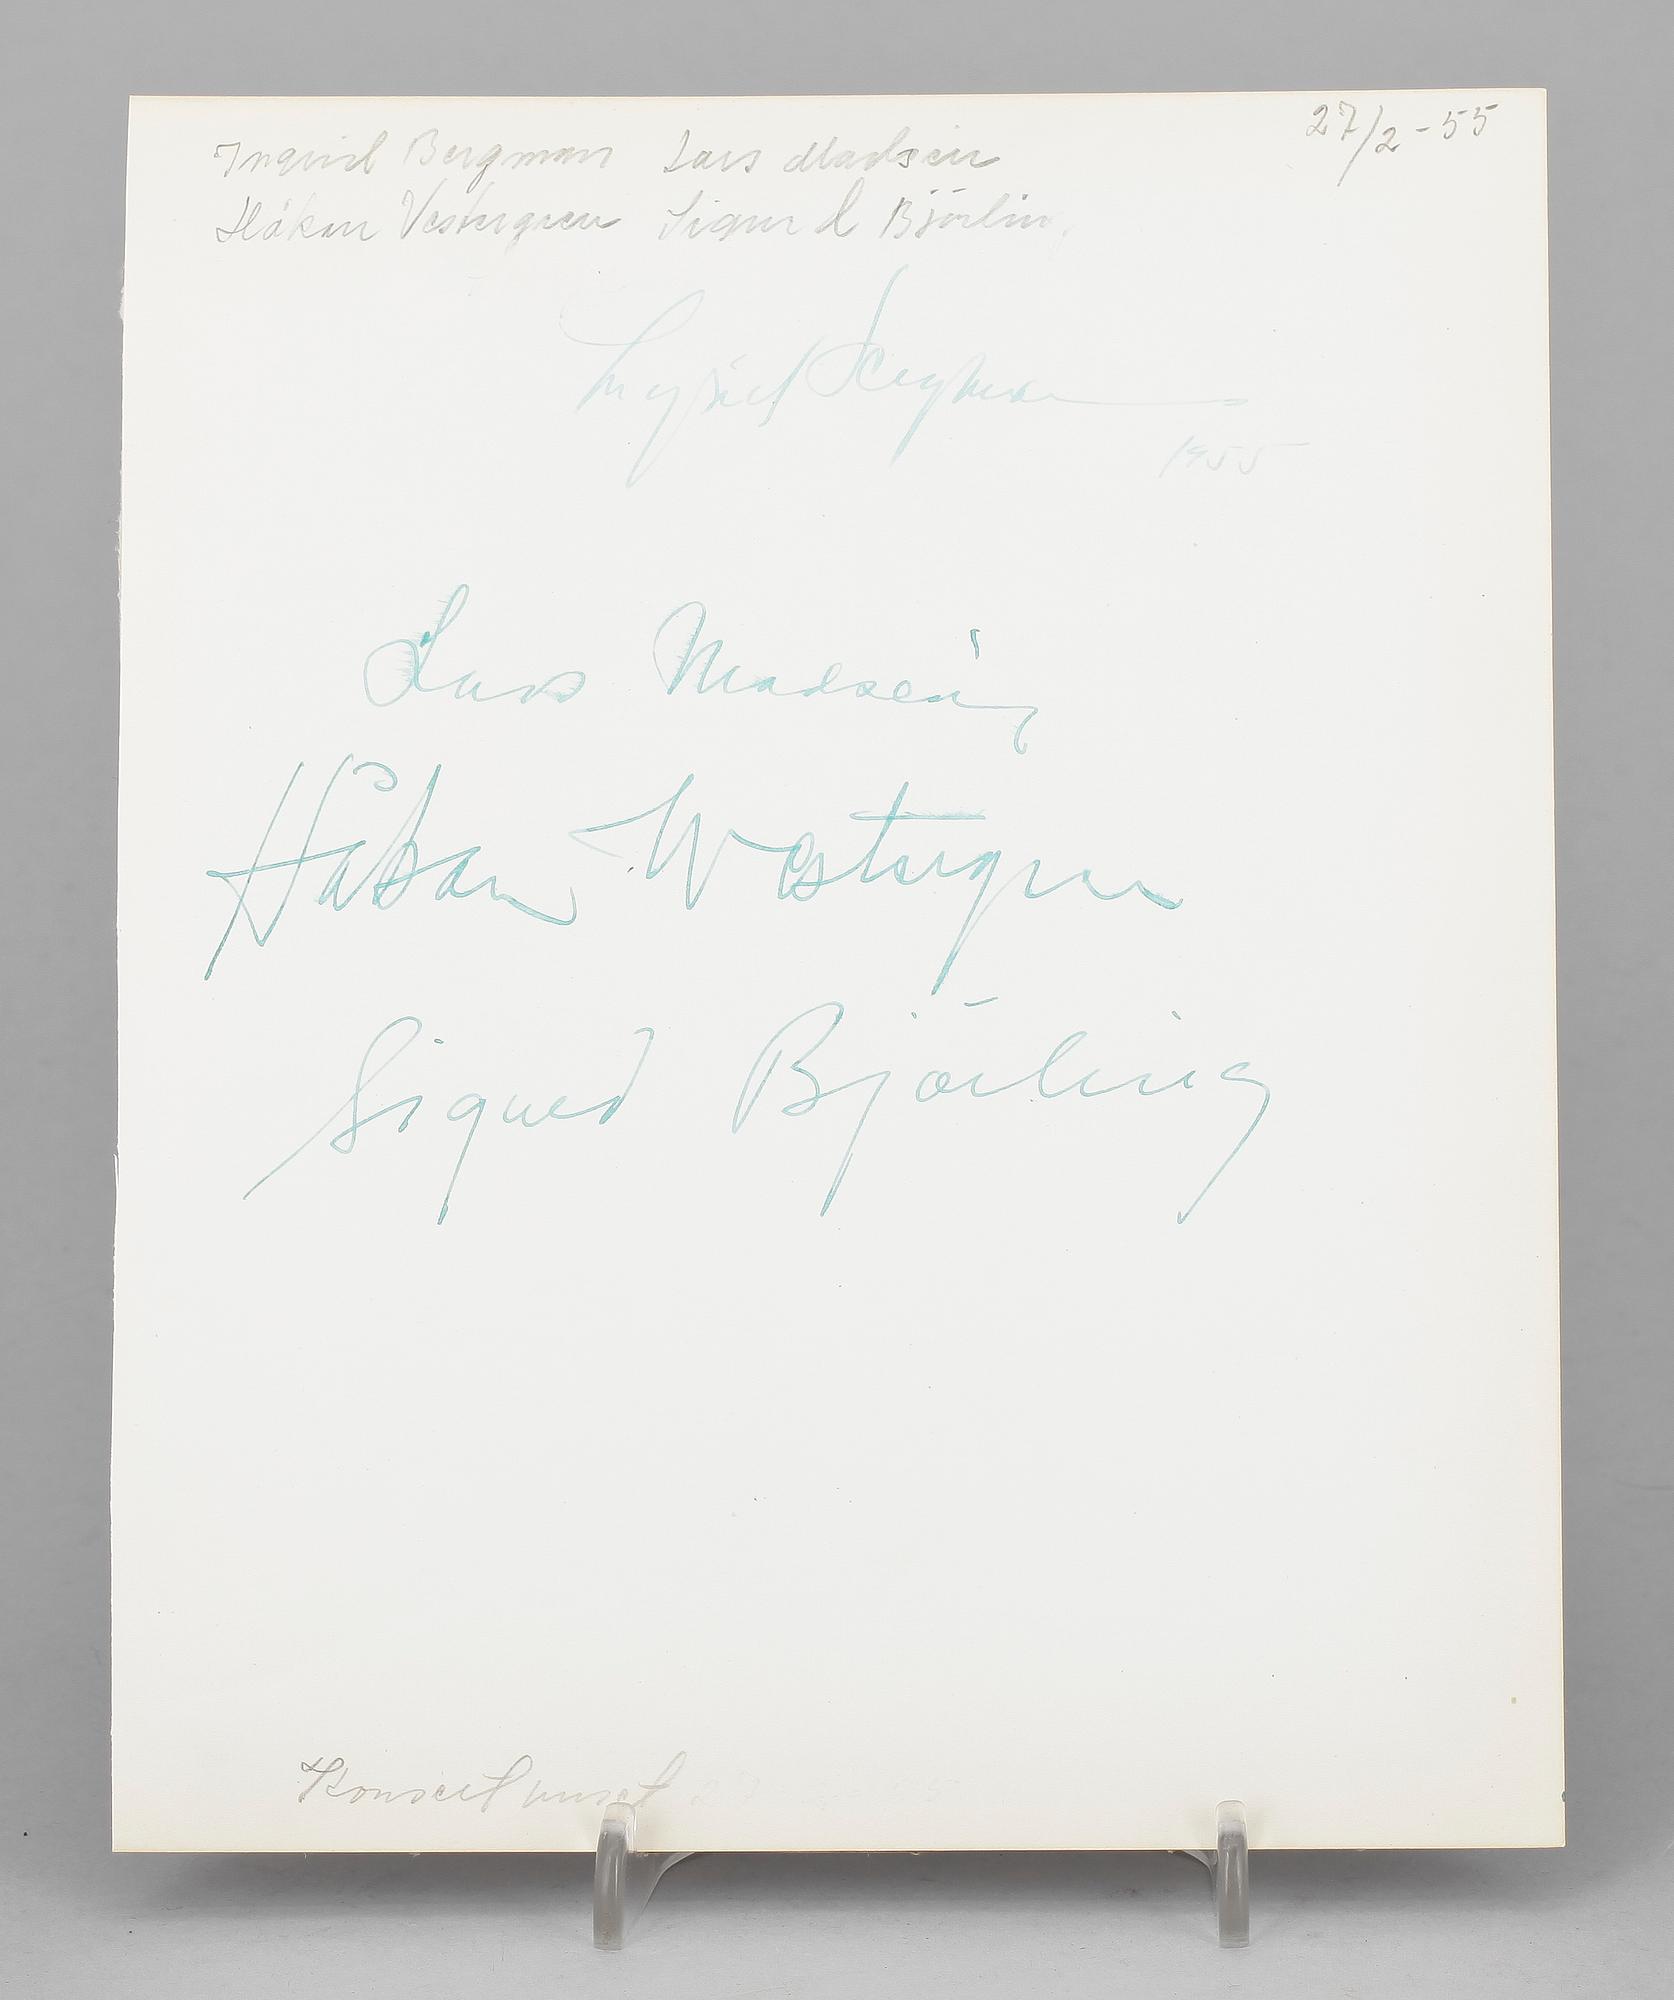 27/2-55
Ingrid Bergman Lars Madsén
Håkan Vestergren Sigurd Björling
Ingrid Bergman
1955
Lars Madsén
Håkan Westergren
Sigurd Björling
Konserthuset 27